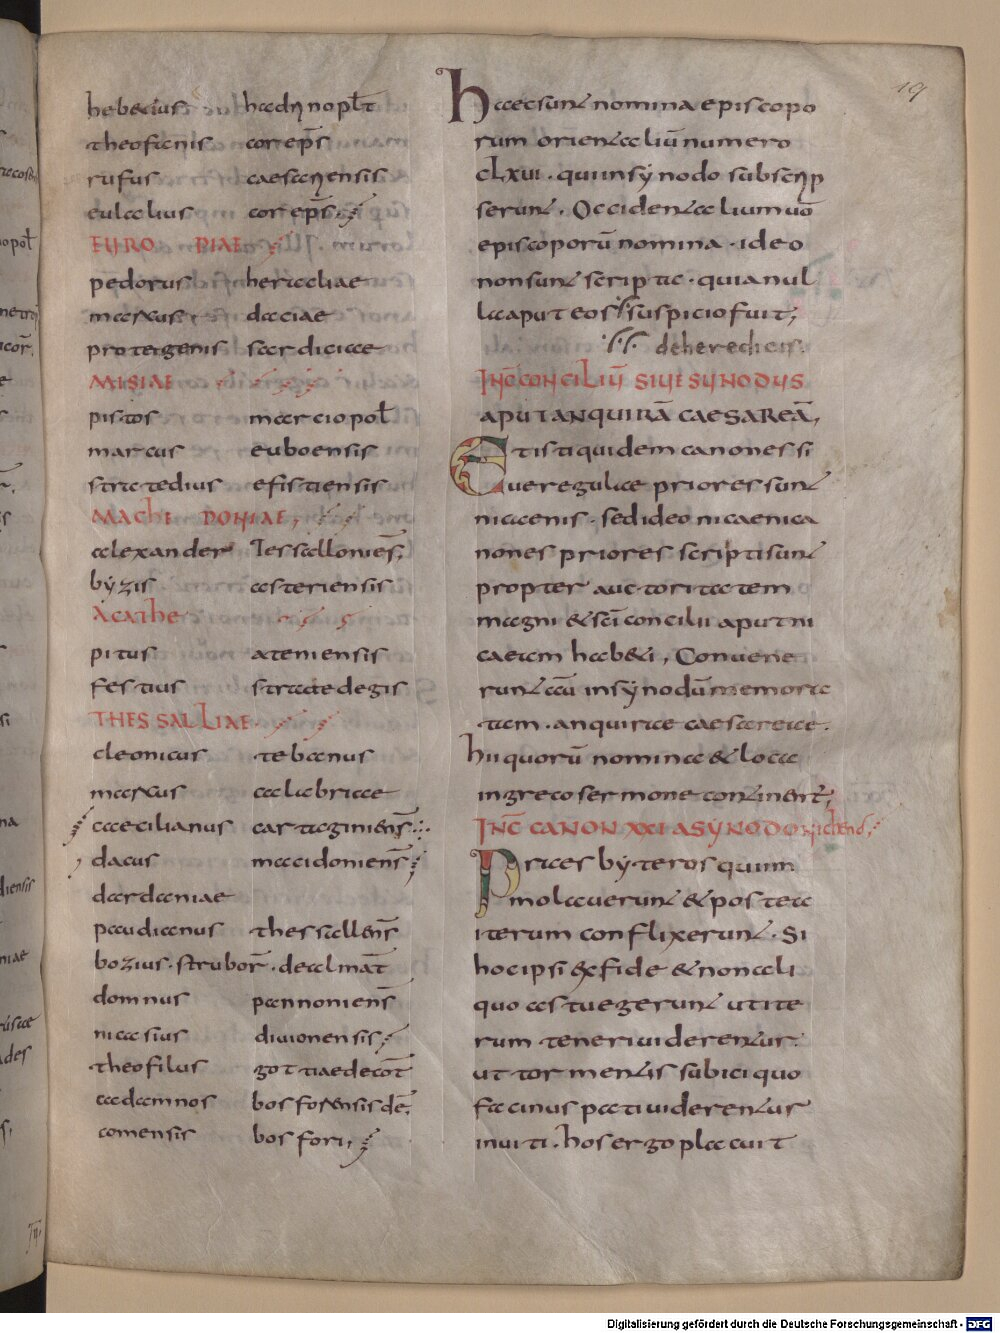 19
hebetius hadrinoplt
theoftenis corep̄s
rufus caesariensis
eulalius corep̄s
EURO PIAE
pedorus heracliae
maxus daciae
protergenis sardiciae
MISIAE
pistos marciopol̄
marcus euboensis
stratedius efistiensis
MACHE DONIAE,
alexander Tessalloniēs,
byzis asteriensis
ACATHE
pitus ateniensis
festius stratedegis
THESSALLIAE
cleonicus tebanus
maxus calabriae
caecilianus cartaginiens̄
dacus macidoniens̄
dardaniae
paudianus thessallens̄
bozius · strubor̄ · dealmat̄
domnus pannoniens̄
nicasius diuionensis
theofilus gottiaedecot̄
cadamnos bosforensis dē,
comensis bosfori,
haec sunt nomina episcopo
rum orientaliū numero
CLXUI · qui in synodo subscrip
serunt · Occidentalium uō
episcoporū nomina · ideo
non sunt scripta · quia nul
la aput eos suspicio fuit,
de heredicis.
INC̄ CONCILIŪ SIUE SYNODUS
APUT ANQUIRĀ CAESAREĀ,
Et isti quidem canones si
ue regulae priores sunt
nicaenis · sed ideo nicaenica
nones priores scripti sunt
propter auctoritatem
magni & sc̄i concilii aput ni
caeam habeti, Conuene
runt eā in synodū memora
tam · anquirae caesareae.
hii quorū nomina & loca
in greco sermone continent,
INC̄ CANON XXI A SYNODO nichens,
Praesbyteros qui im
molauerunt & postea
iterum conflixerunt · Si
hoc ipsi ex fide & non ali
quo astu egerunt ut ite
rum teneri uiderentur.
ut tormentis subici quo
facinus pati uiderentur
inuiti · hos ergo placuit
Digitalisierung gefördert durch die Deutsche Forschungsgemeinschaft - DFG